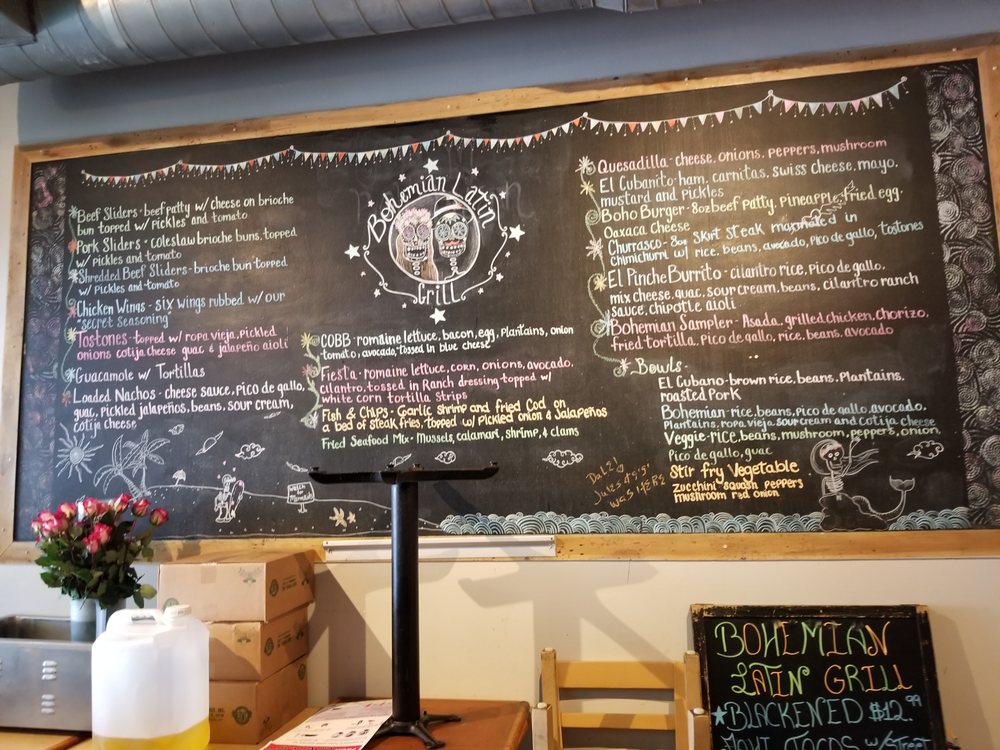 Beef Sliders - beef patty w/ cheese on brioche
bun topped w/ pickles and tomato
Pork Sliders - coleslaw brioche buns, topped
w/ pickles and tomato
Shredded Beef Sliders - brioche bun topped
w/ Pickles and tomato
Chicken Wings - six wings rubbed w/ our
"secret seasoning"
Tostones - topped w/ ropa vieja, pickled
onions cotija cheese guac & jalapeño aioli
Guacamole w/ Tortillas
Loaded Nachos - cheese sauce, pico de gallo,
guac, pickled jalapeños, beans, sour cream,
cotija cheese
Bohemian Latin
Grill
COBB - romaine lettuce, bacon, egg, plantains, onion
tomato, avocado, tossed in blue cheese
Fiesta - romaine lettuce, corn, onions, avocado,
cilantro, tossed in Ranch dressing topped w/
white corn tortilla strips
Fish & Chips - Garlic shrimp and fried Cod on
a bed of steak fries, topped w/ Pickled onion & Jalapeños
Fried Seafood Mix - Mussels, calamari, shrimp, & clams
Quesadilla - cheese, onions, peppers, mushroom
El Cubanito - ham, carnitas, swiss cheese, mayo,
mustard and pickles
Boho Burger - 8oz beef patty, pineapple, fried egg,
Oaxaca cheese
Churrasco - 8oz Skirt steak marinated in
Chimichurri w/ rice, beans, avocado, pico de gallo, tostones
El Pinche Burrito - cilantro rice, pico de gallo,
mix cheese, guac, sour cream, beans, cilantro ranch
sauce, chipotle aioli
Bohemian Sampler - Asada, grilled chicken, chorizo,
fried tortilla, pico de gallo, rice, beans, avocado
Bowls -
El Cubano - brown rice, beans, Plantains,
roasted Pork
Bohemian - rice, beans, pico de gallo, avocado,
Plantains, ropa vieja, sour cream and cotija cheese
Veggie - rice, beans, mushroom, peppers, onion,
Pico de gallo, guac
Stir fry Vegetable
zucchini squash peppers
mushroom red onion
BOHEMIAN
LATIN GRILL
BLACKENED $12.99